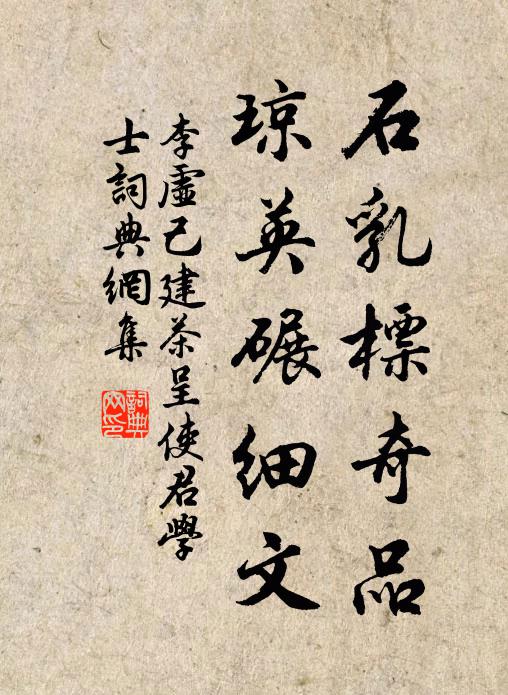 石乳標奇品
琼英碾細文
李虛己建茶呈使君學
士詞典網集
詞典網印